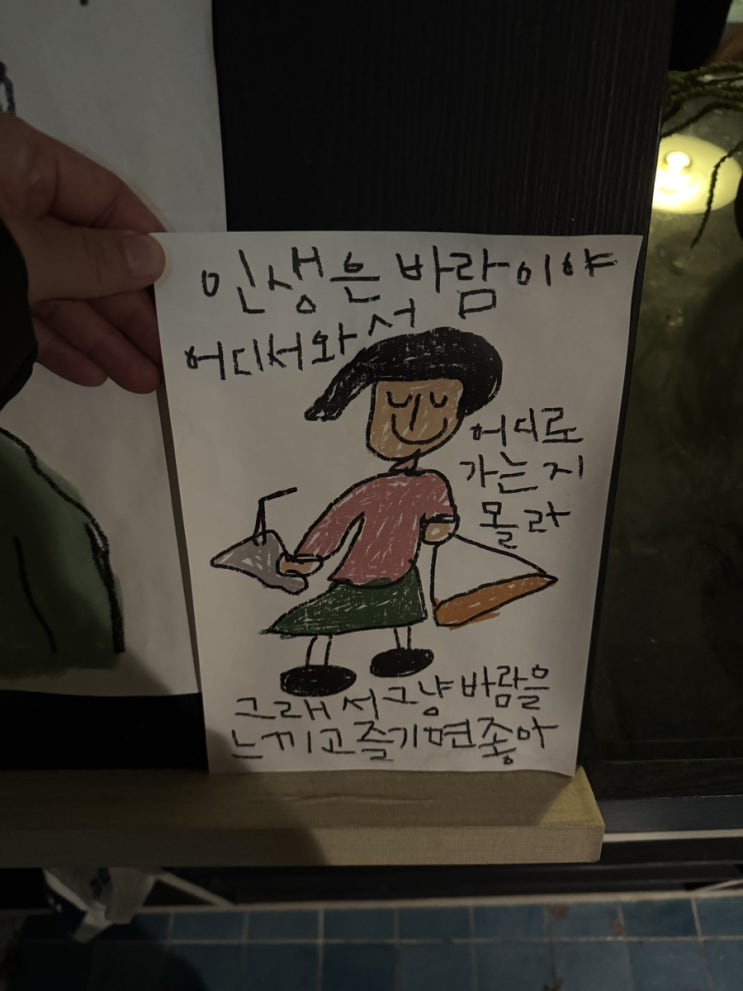 인생은 바람이야
어디서 와서
어디로
가는지
몰라
그래서 그냥 바람을
느끼고 즐기면 좋아